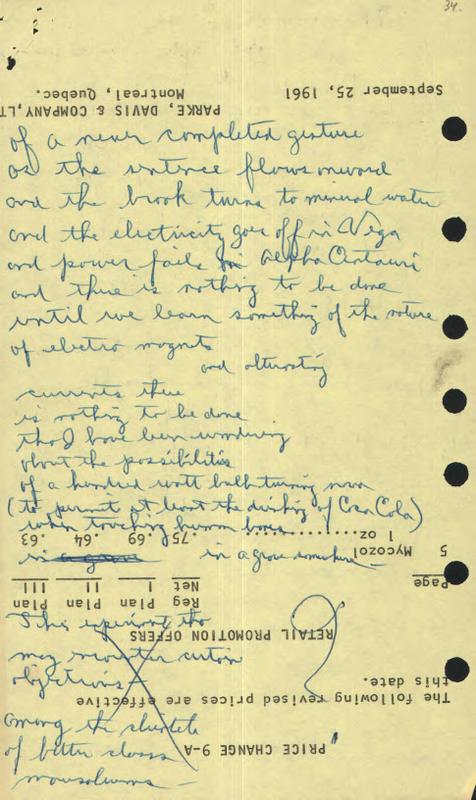 34.
of a never completed gesture
as the sentence flows onward
and the brook turns to mineral water
and the electricity goes off in Vega
and power fails in Alpha Centauri
and there is nothing to be done
until we learn something of the nature
of electro magnets
and alternating
currents there
is nothing to be done
tho I have been wondering
about the possibilities
of a hundred watt bulb turning
(to permit at least the drinking of Coca Cola)
when touching human bones
in a grave somewhere —
This experiment tho
may encounter certain
objections —
among the clientele
of better class
mausoleums —
PRICE CHANGE 9-A
The following revised prices are effective
this date.
RETAIL PROMOTION OFFERS
Page Reg Net Plan I Plan II Plan III
5 Mycozol 1 oz .75 .69 .64 .63
September 25, 1961
PARKE, DAVIS & COMPANY, LT
Montreal, Quebec.